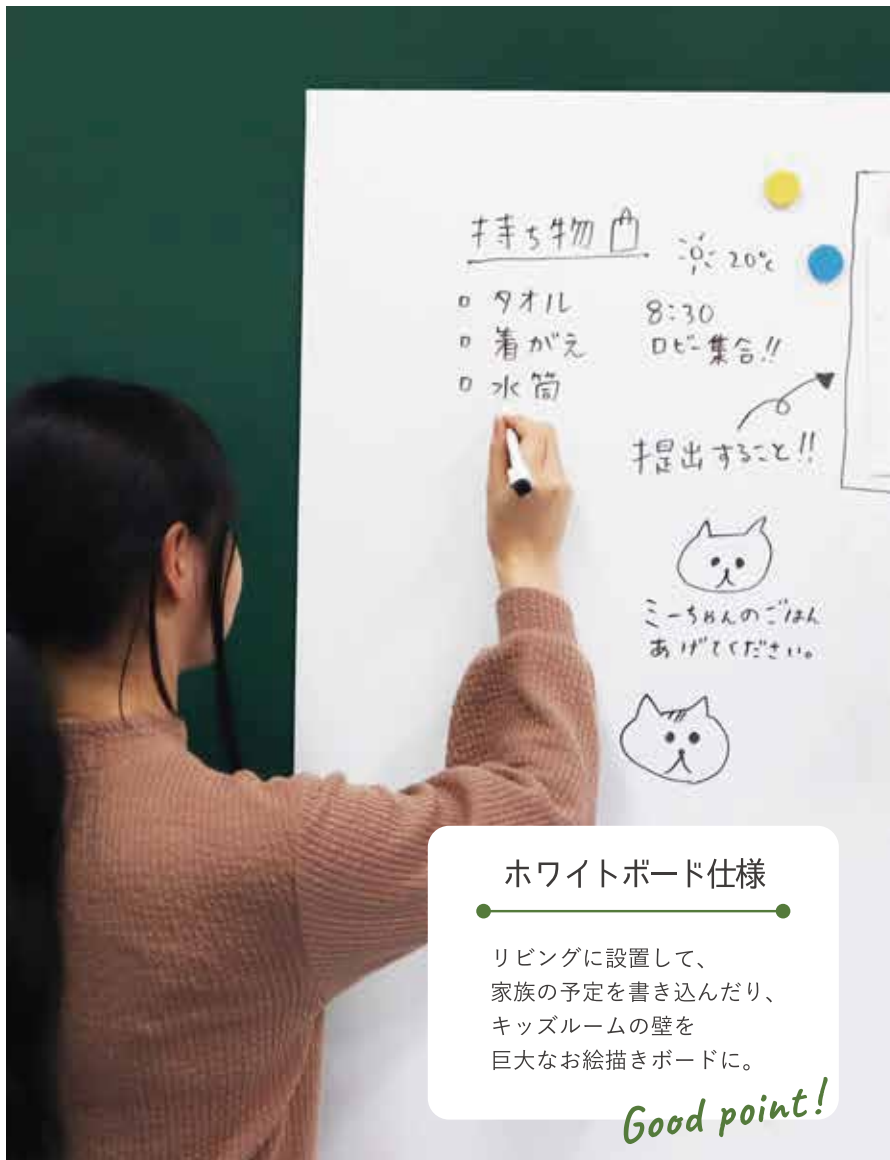 持ち物
20℃
□ タオル
□ 着がえ
□ 水筒
8:30
ロビー集合!!
提出すること!!
ミーちゃんのごはん
あげてください。
ホワイトボード仕様
リビングに設置して、
家族の予定を書き込んだり、
キッズルームの壁を
巨大なお絵描きボードに。
Good point!